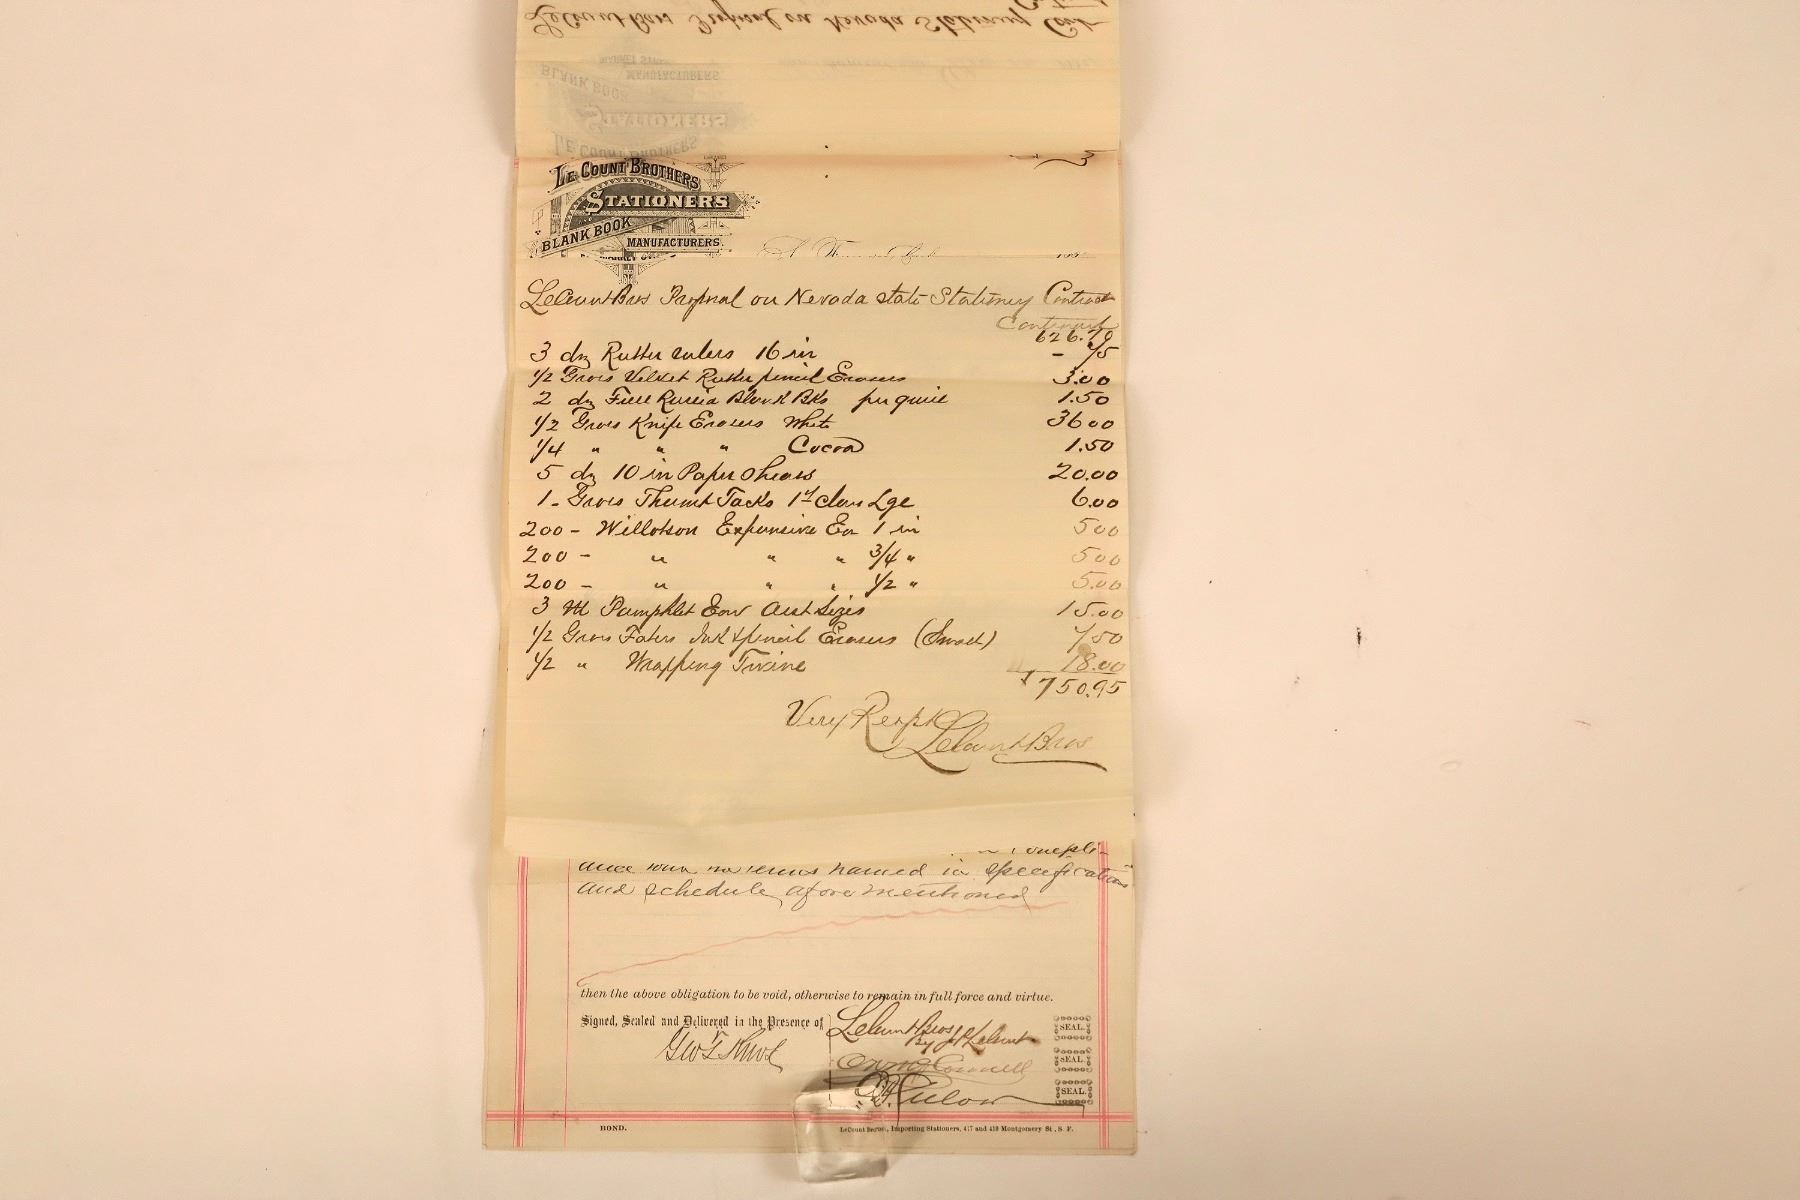 LeCount Bros Proposal on Nevada Stationery Cont
LE COUNT BROTHERS
STATIONERS
BLANK BOOK
MANUFACTURERS.
3
LeCount Bros Proposal on Nevada State Stationery Contract
Continued
626.70
3 dz Rubber rulers 16 in - 75
1/2 Gross Velvet Rubber pencil Erasers 3.00
2 dz Full Russia Blank Bks per quire 1.50
1/2 Gross Knife Erasers White 36 00
1/4 " " " Cocoa 1.50
5 dz 10 in Paper Shears 20.00
1 - Gross Thumb Tacks 1st class Lge 6.00
200 - Expansive En 1 in 5 00
200 - " " " 3/4 " 5 00
200 - " " " 1/2 " 5.00
3 M Pamphlet Env Asst Sizes 15.00
1/2 Gross Fabers Ink & pencil Erasers (Small) 7.50
1/2 " Wrapping Twine 18.00
$750.95
Very Respt
LeCount Bros
compli-
ance with the terms named in specifications
and schedule aforementioned
then the above obligation to be void, otherwise to remain in full force and virtue.
Signed, Sealed and Delivered in the Presence of
LeCount Bros
By J P LeCount
SEAL.
SEAL
SEAL.
BOND.
LeCount Bros., Importing Stationers, 417 and 419 Montgomery St., S. F.